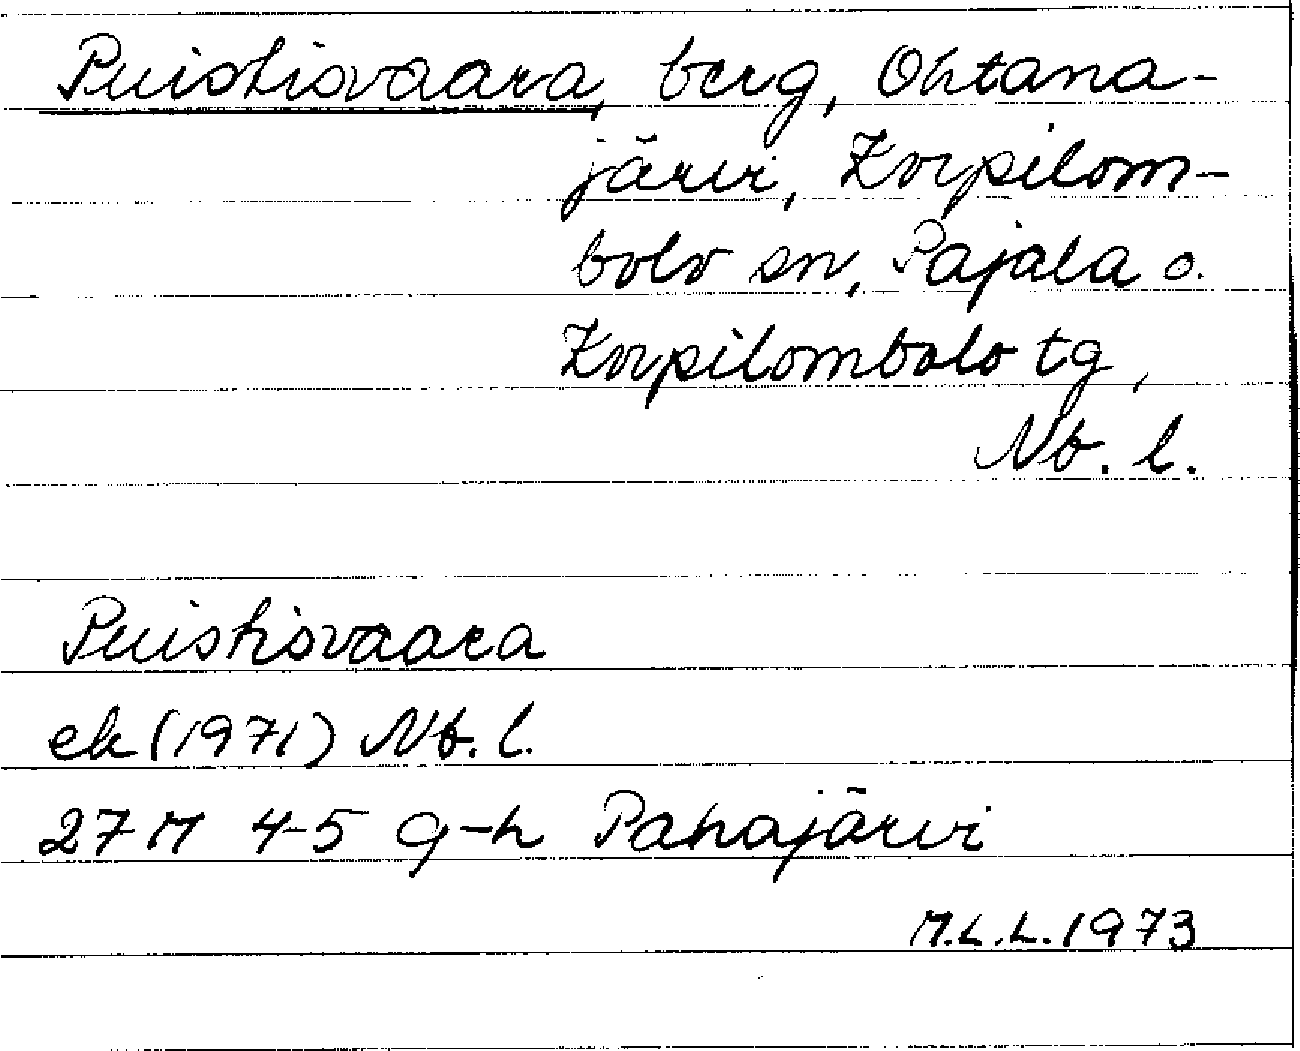 Puistisvaara, berg, Ohtana-
järvi, Korpilom-
bolo sn, Pajala o.
Korpilombolo tg,
Nb. l.
Puistisvaara
ek (1971) Nb. l.
27 M 4-5 g-h Pahajärvi
M.L.L. 1973